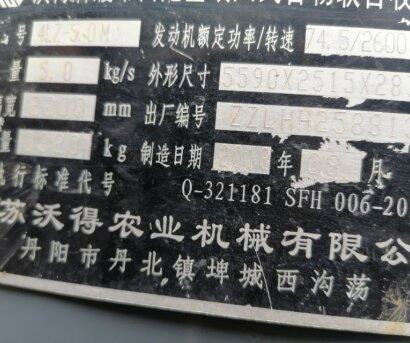 号 4LZ-5.0M 发动机额定功率/转速 74.5/2600
量 5.0 kg/s 外形尺寸 5590X2515X28
宽 2200 mm 出厂编号
量 kg 制造日期 年 月
执行标准代号 Q-321181 SFH 006-20
苏沃得农业机械有限公
丹阳市丹北镇埤城西沟荡